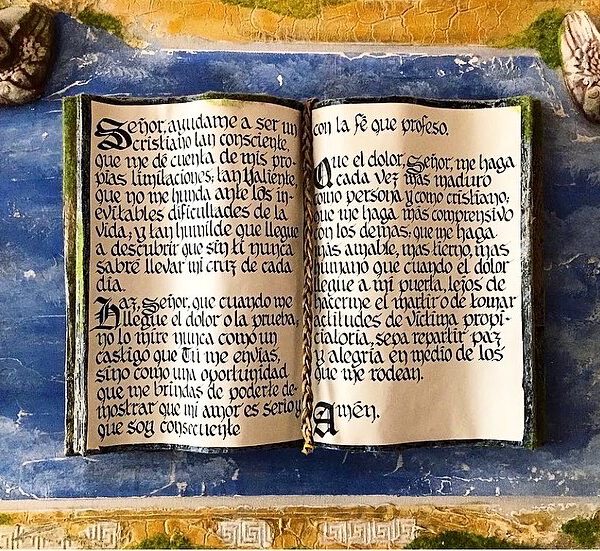 Señor, ayudame a ser un
cristiano tan consciente,
que me dé cuenta de mis pro-
pias limitaciones; tan valiente,
que no me hunda ante los in-
evitables dificultades de la
vida; y tan humilde que llegue
a descubrir que sin ti nunca
sabré llevar mi cruz de cada
día.
Haz, Señor, que cuando me
llegue el dolor o la prueba,
no lo mire nunca como un
castigo que Tú me envías,
sino como una oportunidad
que me brindas de poderte de-
mostrar que mi amor es serio y
que soy consecuente
con la fé que profeso.
Que el dolor, Señor, me haga
cada vez más maduro
como persona y como cristiano;
que me haga más comprensivo
con los demás; que me haga
más amable, mas tierno, mas
humano que cuando el dolor
llegue a mi puerta, lejos de
hacerme el martir o de tomar
actitudes de víctima propi-
iatoria, sepa repartir paz
y alegría en medio de los
que me rodean.
Amén.